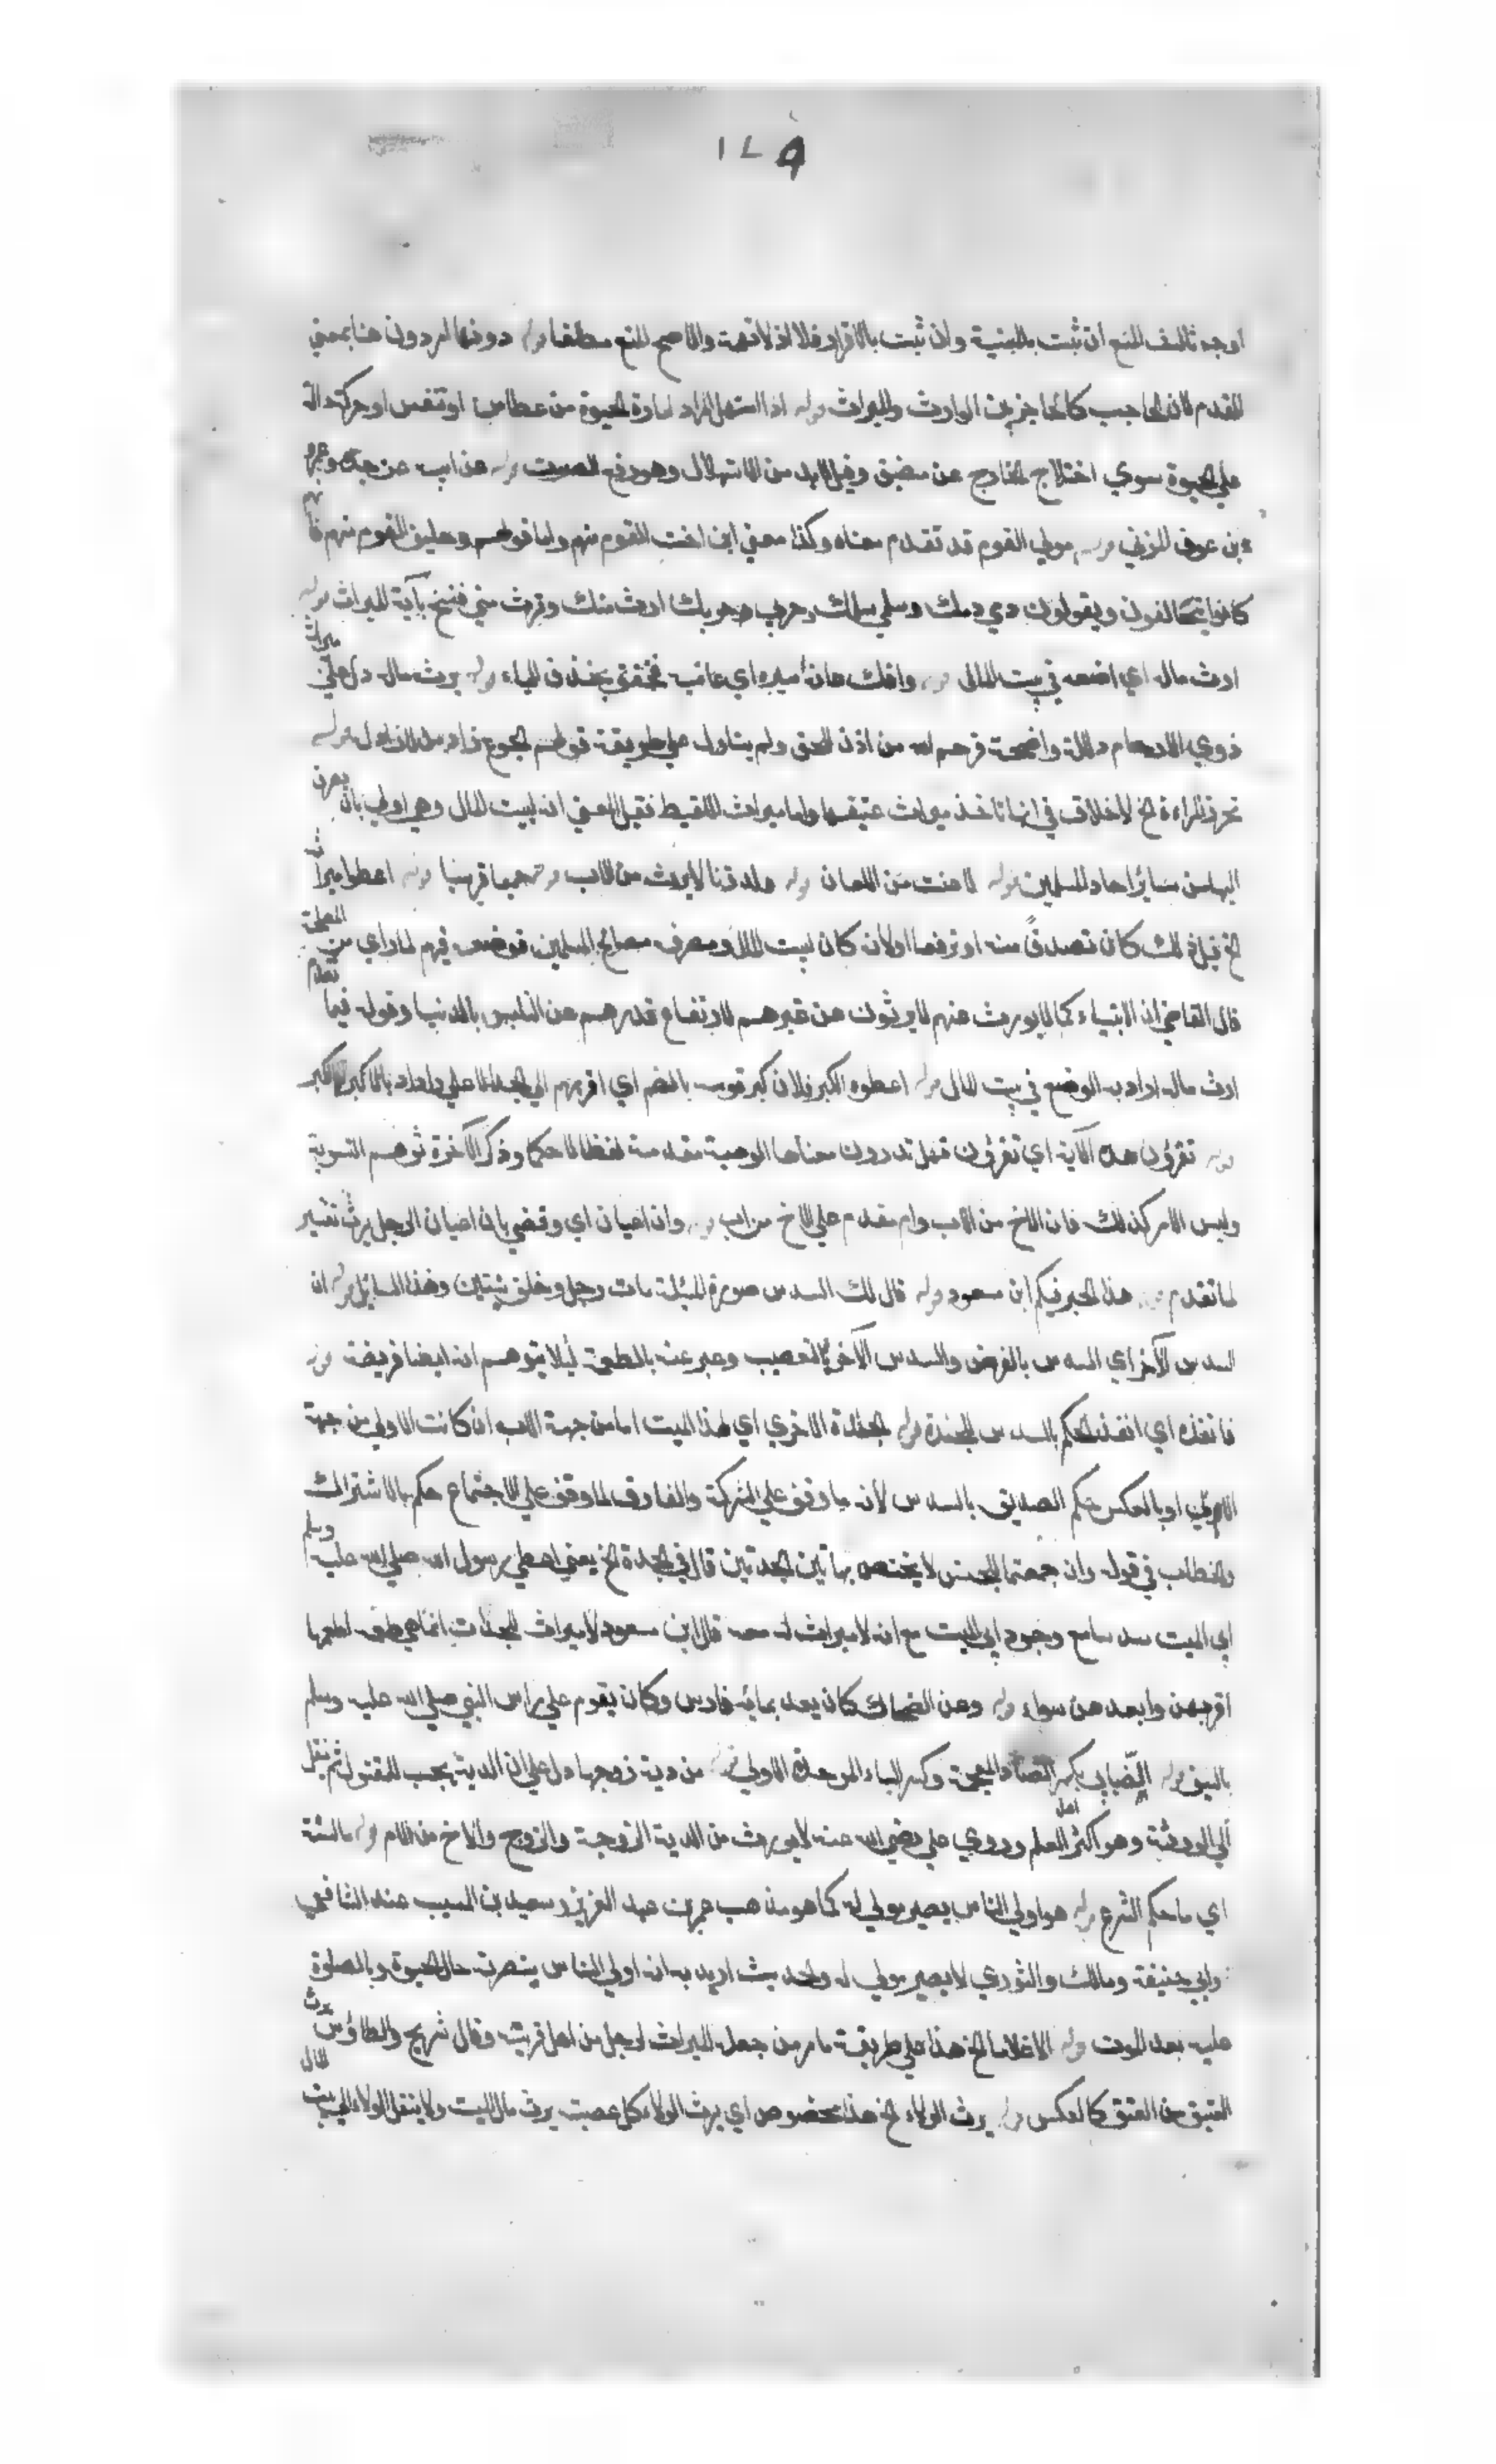 ١٧٩
اوجه ثالث المنع ان ثبت بالبينة وان ثبت بالاقرار فلا اذ لا تهمة والاصح المنع مطلقا قوله دونها ام دون هنا بمعني
القدم لان الحاجب كالحاجز بين الوارث والميراث قوله اذا استهل المراد امارة الحيوة من عطاس او تنفس او حركة دالة
علي الحيوة سوي اختلاج الخارج عن مضيق وقيل لابد من الاستهلال وهو رفع الصوت قوله عن ابيه عن جده وعمرو
بن عوف المزني قوله مولي القوم قد تقدم معناه وكذا معني ابن اخت القوم منهم واما قولهم وحليف القوم منهم فانهم
كانوا يتحالفون ويقولون دمي دمك وسلمي سلمك وحربي حربك ارث منك وترث مني فنسخ بآية الميراث قوله
ارث ماله اي اضعه في بيت المال قوله وافك عانه اسيره اي عانيه فخفف بحذف الياء قوله يرث ماله دل علي ميراث
ذوي الارحام دلالة واضحة فرحم الله من اذن للحق ولم يتاول علي طريقة قولهم الجوع زاد من لا زاد له قوله
تحرز المراءة الخ لا خلاف في انها تاخذ ميراث عتيقها واما ميراث اللقيط فقيل المعني انه لبيت المال وهي اولي بان يصرف
اليها من سائر احاد المسلمين قوله لاعنت من اللعان قوله ولد زنا لا يرث من الاب قوله حميما قريبا قوله اعطوا ميراثه
الخ قيل ذلك كان تصدقا منه او ترفعا اولانه كان لبيت المال ومصرفه مصالح المسلمين فوضعه فيهم لما راي من المصلحة
قال القاضي ان الانبياء كما لا يورث عنهم لا يرثون عن غيرهم لارتفاع قدرهم عن التلبس بالدنيا وقوله فيما تقدم
ارث ماله اراد به الوضع في بيت المال قوله اعطوه الكبر فلان كبر قومه بالضم اي اقربهم الي الجد الاعلي واراد بالاكبر الكبر
قوله تقرؤن هذه الآية اي تقرؤن فهل تدرون معناها الوصية مقدمة لفظا لا حكما وذكر الاخوة توهم التسوية
وليس الامر كذلك فان الاخ من الاب وام مقدم علي الاخ من اب قوله وان اعيان اي وقضي بان اعيان الرجل يرث تفسير
لما تقدم قوله هذا الحبر فيكم ابن مسعود قوله قال لك السدس صورة المسئلة مات رجل وخلف بنتين وهذا السائل قوله ان
السدس الآخر اي السدس بالفرض والسدس الآخر بالتعصيب وعبر عنه بالطعمة لئلا يتوهم انه ايضا فريضة قوله
فانفذه اي انفذ الحكم بالسدس للجدة قوله الجدة الاخري اي لهذا الميت اما من جهة الاب ان كانت الاولي من جهة
الام او بالعكس حكم الصديق بالسدس لانه ما وقف علي الشركة والفاروق لما وقف علي الاجتماع حكم بالاشتراك
والخطاب في قوله وان جمعتما للجنس لا يختص بهاتين الجدتين قال في الجدة الخ يعني اعطي رسول الله صلي الله عليه وسلم
ابي الميت سدسا مع وجود ابي الميت مع انه لا ميراث له معه قال ابن مسعود لا ميراث للجدات انما هي طعمة اطعمها
اقربهن وابعدهن سواء قوله وعن الضحاك كان يعد بمائة فارس وكان يقوم علي راس النبي صلي الله عليه وسلم
بالسيف قوله الضبابي بكسر الضاد المعجمة وكسر الباء الموحدة الاولي قوله من دية زوجها دل علي ان الدية يجب للمقتول ثم ينقل
الي الورثة وهو اكثر اهل العلم وروي علي رضي الله عنه لا يورث من الدية الزوجة والزوج والاخ من الام قوله ما السنة
اي ما حكم الشرع قوله هو اولي الناس يصير مولي له كما هو مذهب عمر بن عبد العزيز وسعيد بن المسيب عند الشافعي
وابي حنيفة ومالك والثوري لا يصير مولي له والحديث اريد به انه اولي الناس ينصرته حال الحيوة وبالصلوة
عليه بعد الموت قوله الا غلاما الخ هذا علي طريقة ما مر من جعل الميراث لرجل من اهل قريته وقال شريح والطاؤس يرث
العتيق من المعتق كالعكس قوله يرث الولاء الخ هذا مخصوص اي يرث الولاء كل عصبة يرث مال الميت ولا ينتقل الولاء الي بيت المال